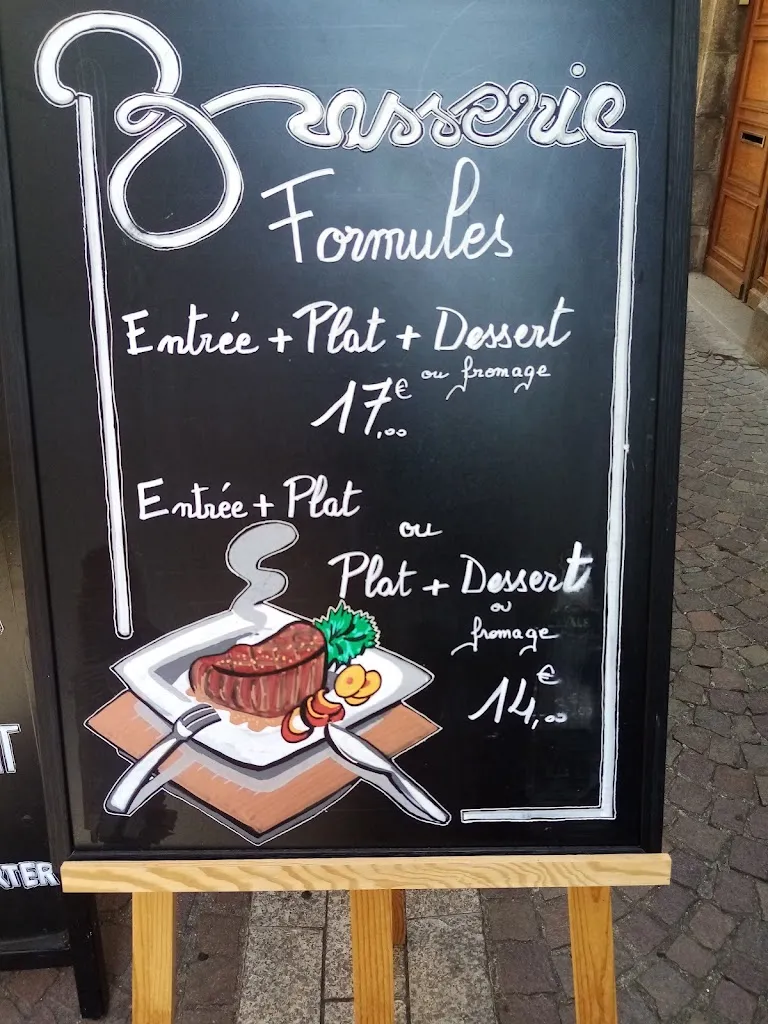 Brasserie
Formules
Entrée + Plat + Dessert
ou fromage
17,00€
Entrée + Plat
ou
Plat + Dessert
ou
fromage
14,00€